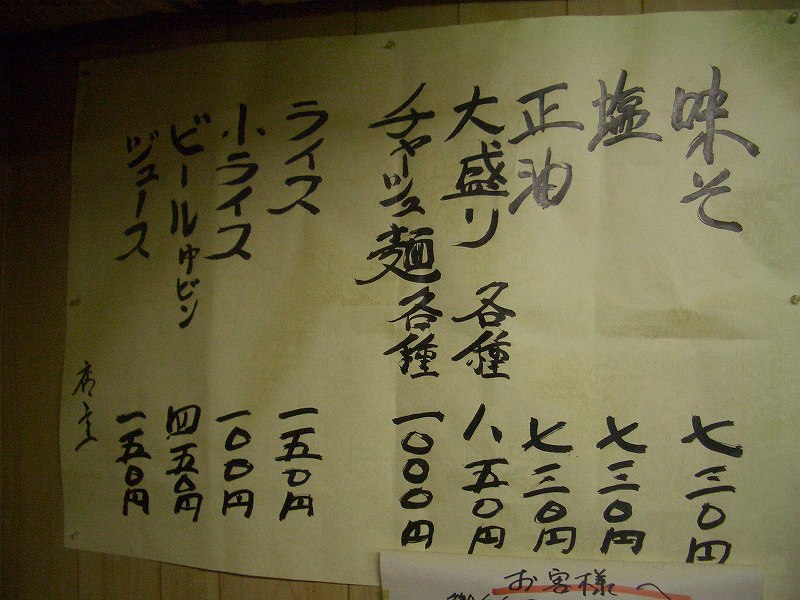 味そ 七三〇円
塩 七三〇円
正油 七三〇円
大盛り 各種 八五〇円
チャーシュー麺各種 一〇〇〇円
ライス 一五〇円
小ライス 一〇〇円
ビール中ビン 四五〇円
ジュース 一五〇円
店主
お客様へ